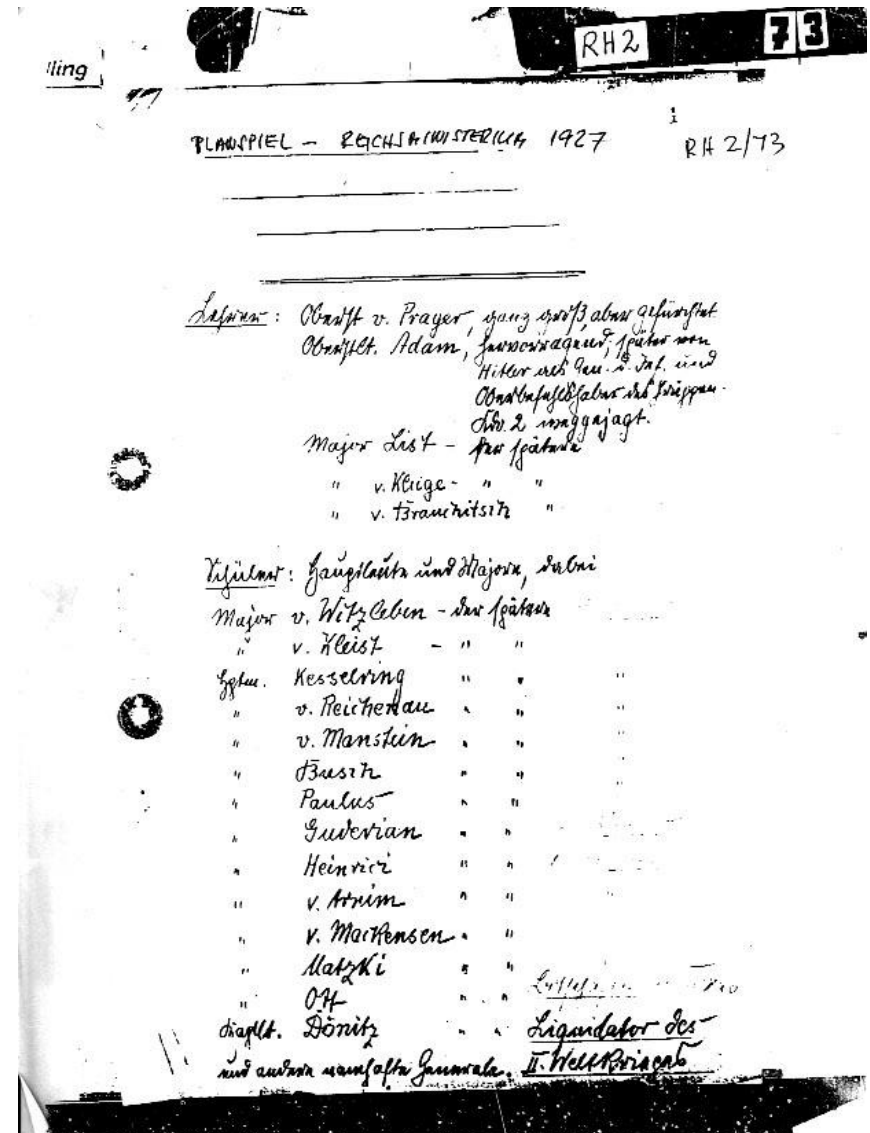 RH2
73
lling
PLANSPIEL – REICHSMINISTERIUM 1927
RH 2/73
Lehrer: Oberst v. Prager, ganz groß, aber gefürchtet
Oberstlt. Adam, hervorragend; später von
Hitler als Gen. d. Inf. und
Oberbefehlshaber des Gruppen-
Kdo. 2 weggejagt.
Major List – der spätere
" v. Kluge – " "
" v. Brauchitsch "
Schüler: Hauptleute und Majore, dabei
Major v. Witzleben – der spätere
" v. Kleist – " "
Hptm. Kesselring " " "
" v. Reichenau " " "
" v. Manstein " " "
" Busch " " "
" Paulus " "
" Guderian " "
" Heinrici " "
" v. Arnim " "
" v. Mackensen " "
" Matzki " "
" Ott " "
Kaptlt. Dönitz " " Liquidator des
und andere namhafte Generale. II. Weltkrieges